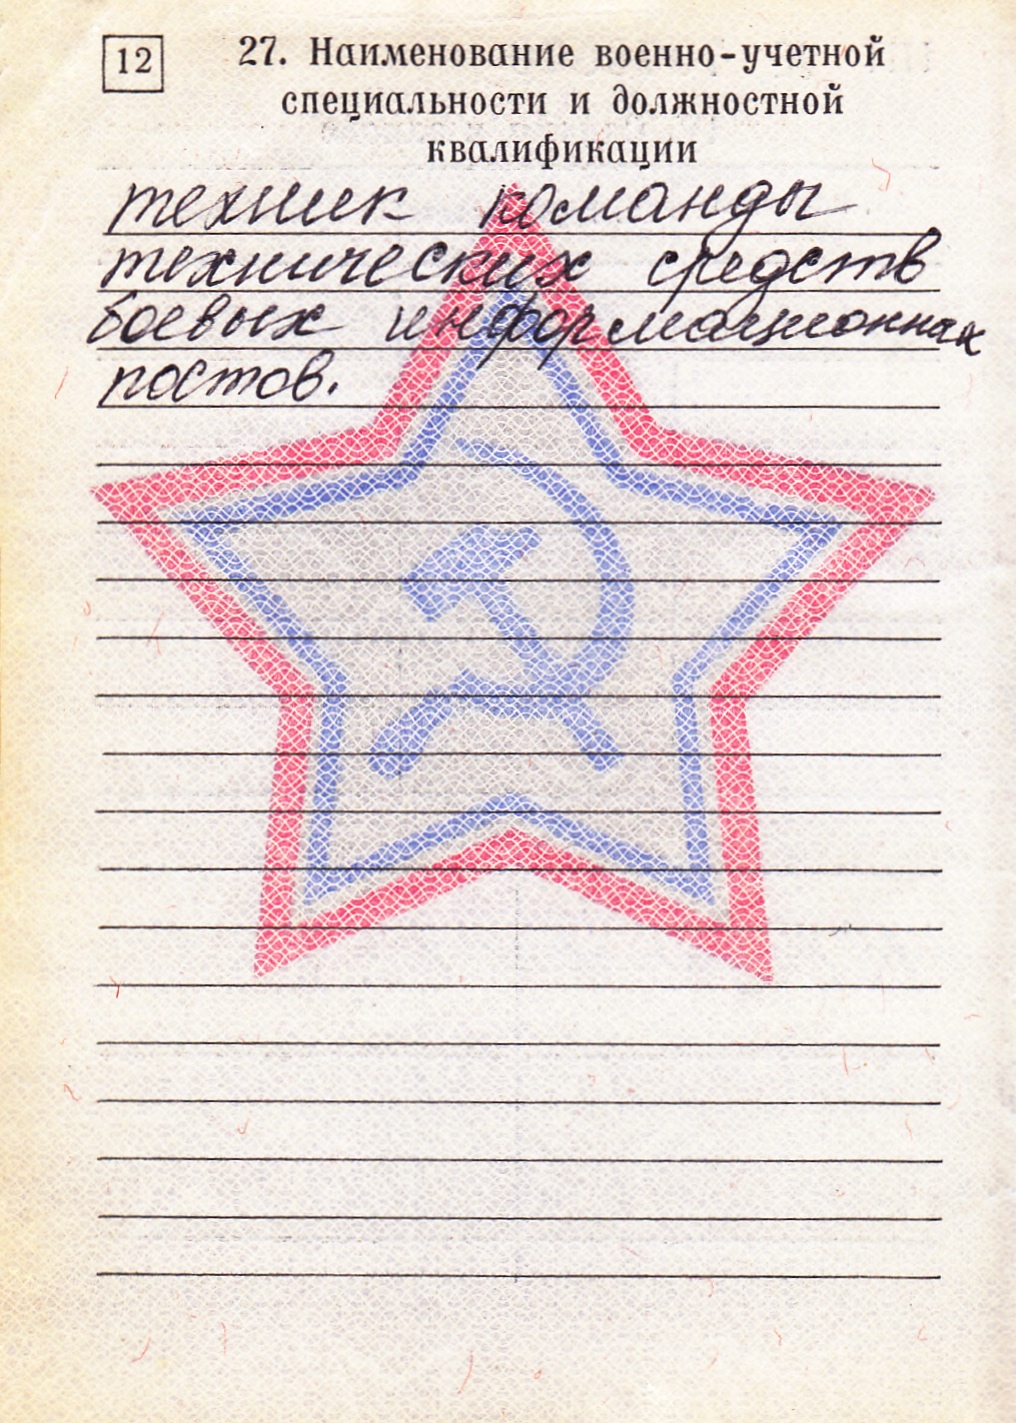 12
27. Наименование военно-учетной
специальности и должностной
квалификации
техник команды
технических средств
боевых информационных
постов.